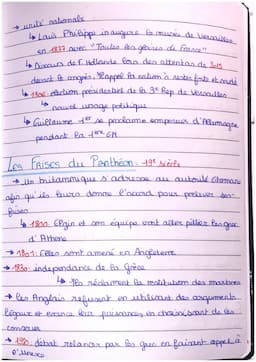 → unité nationale
↳ Louis Philippe inaugure le musée de Versailles
en 1837 avec "Toutes les gloires de France"
↳ Discours de F. Hollande lors des attentas de 2015
devant le congrès. Rappel la nation à rester forte et soudé
↳ élection présidentiel de la 3e Rep de Versailles
↳ nouvel usage politique
↳ Guillaume 1er se proclame empereur d'Allemagne
pendant la 1ere GM
Les Frises du Panthéon. 19e siècle
→ les britannique s'adresse au autorité Ottomane
afin qu'ils leurs donne l'accord pour prélever ses
frises
↳ 1800: Elgin et son équipe vont aller piller les grec
d'Athène
→ 1801: Elles sont amené en Angleterre
→ 1830: indépendance de la Grèce
↳ Ils réclament la restitution des marbres
→ Les Anglais refusent en utilisant des arguments
légaux et exerce leur puissances en choisissant de les
conserver
↳ débat relancer par les grec en faisant appel à
l'Unesco